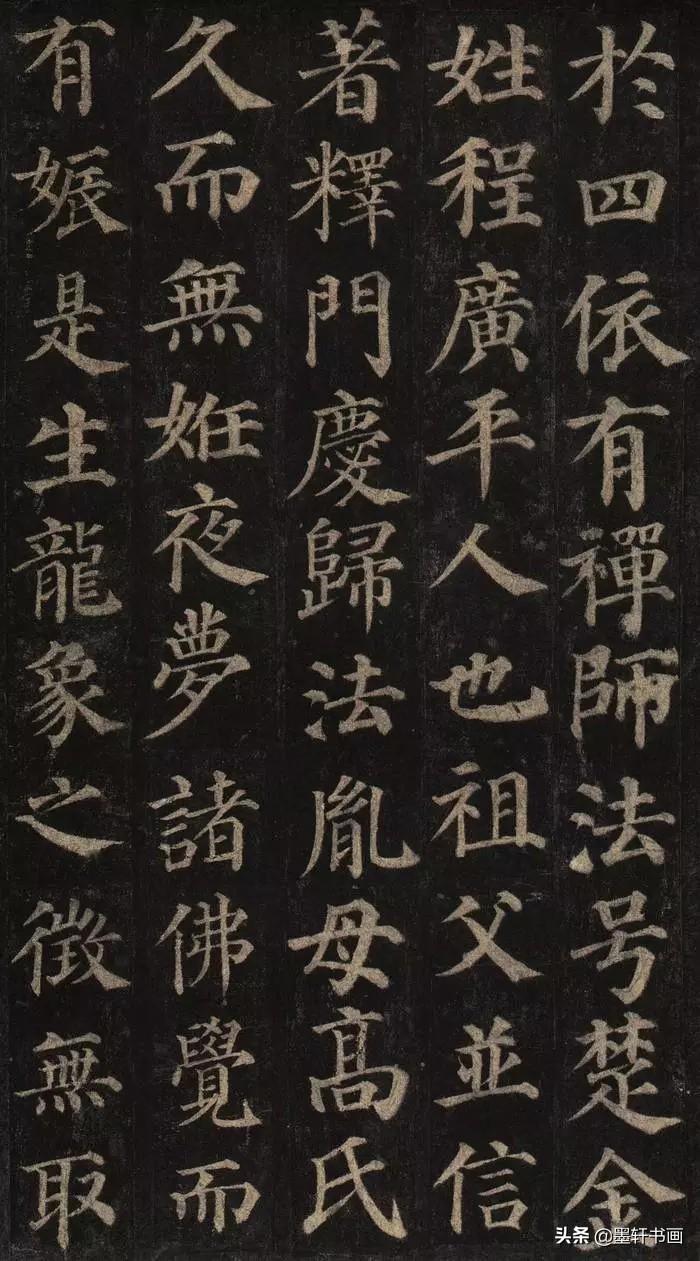 於四依有禪師法号楚金
姓程廣平人也祖父並信
著釋門慶歸法胤母高氏
久而無妊夜夢諸佛覺而
有娠是生龍象之徵無取
头条 @墨轩书画